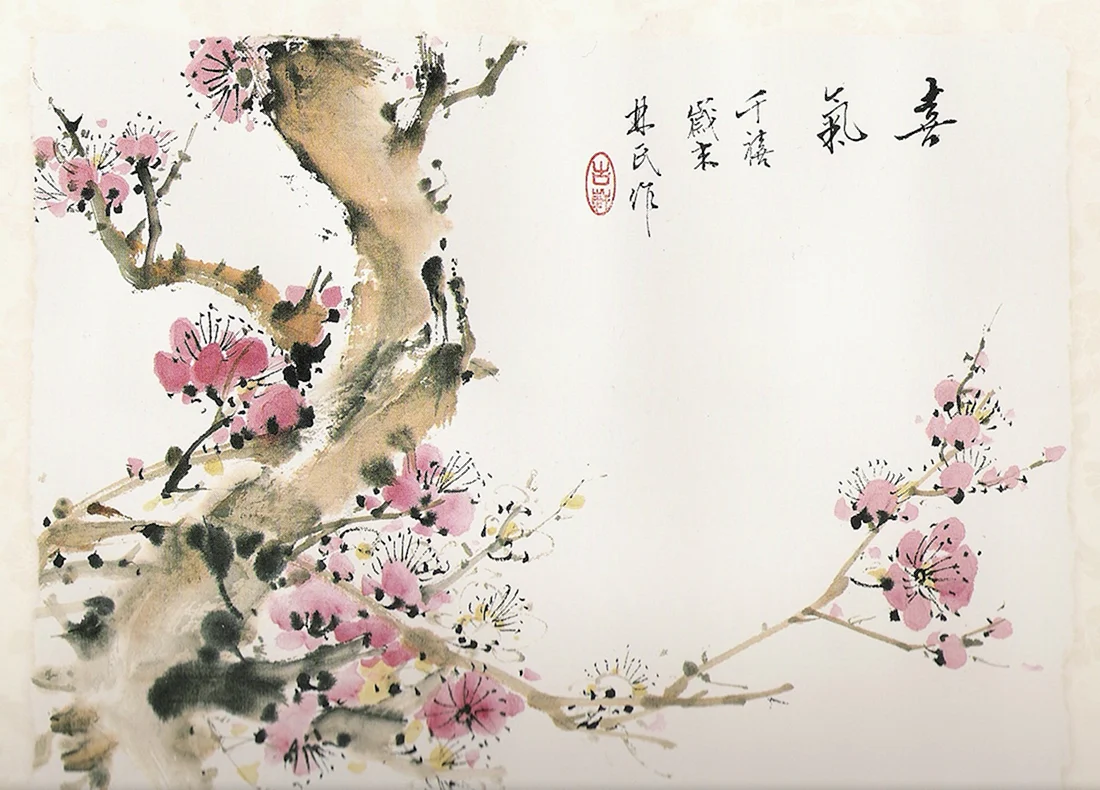 喜氣
千禧
歲末
林氏作